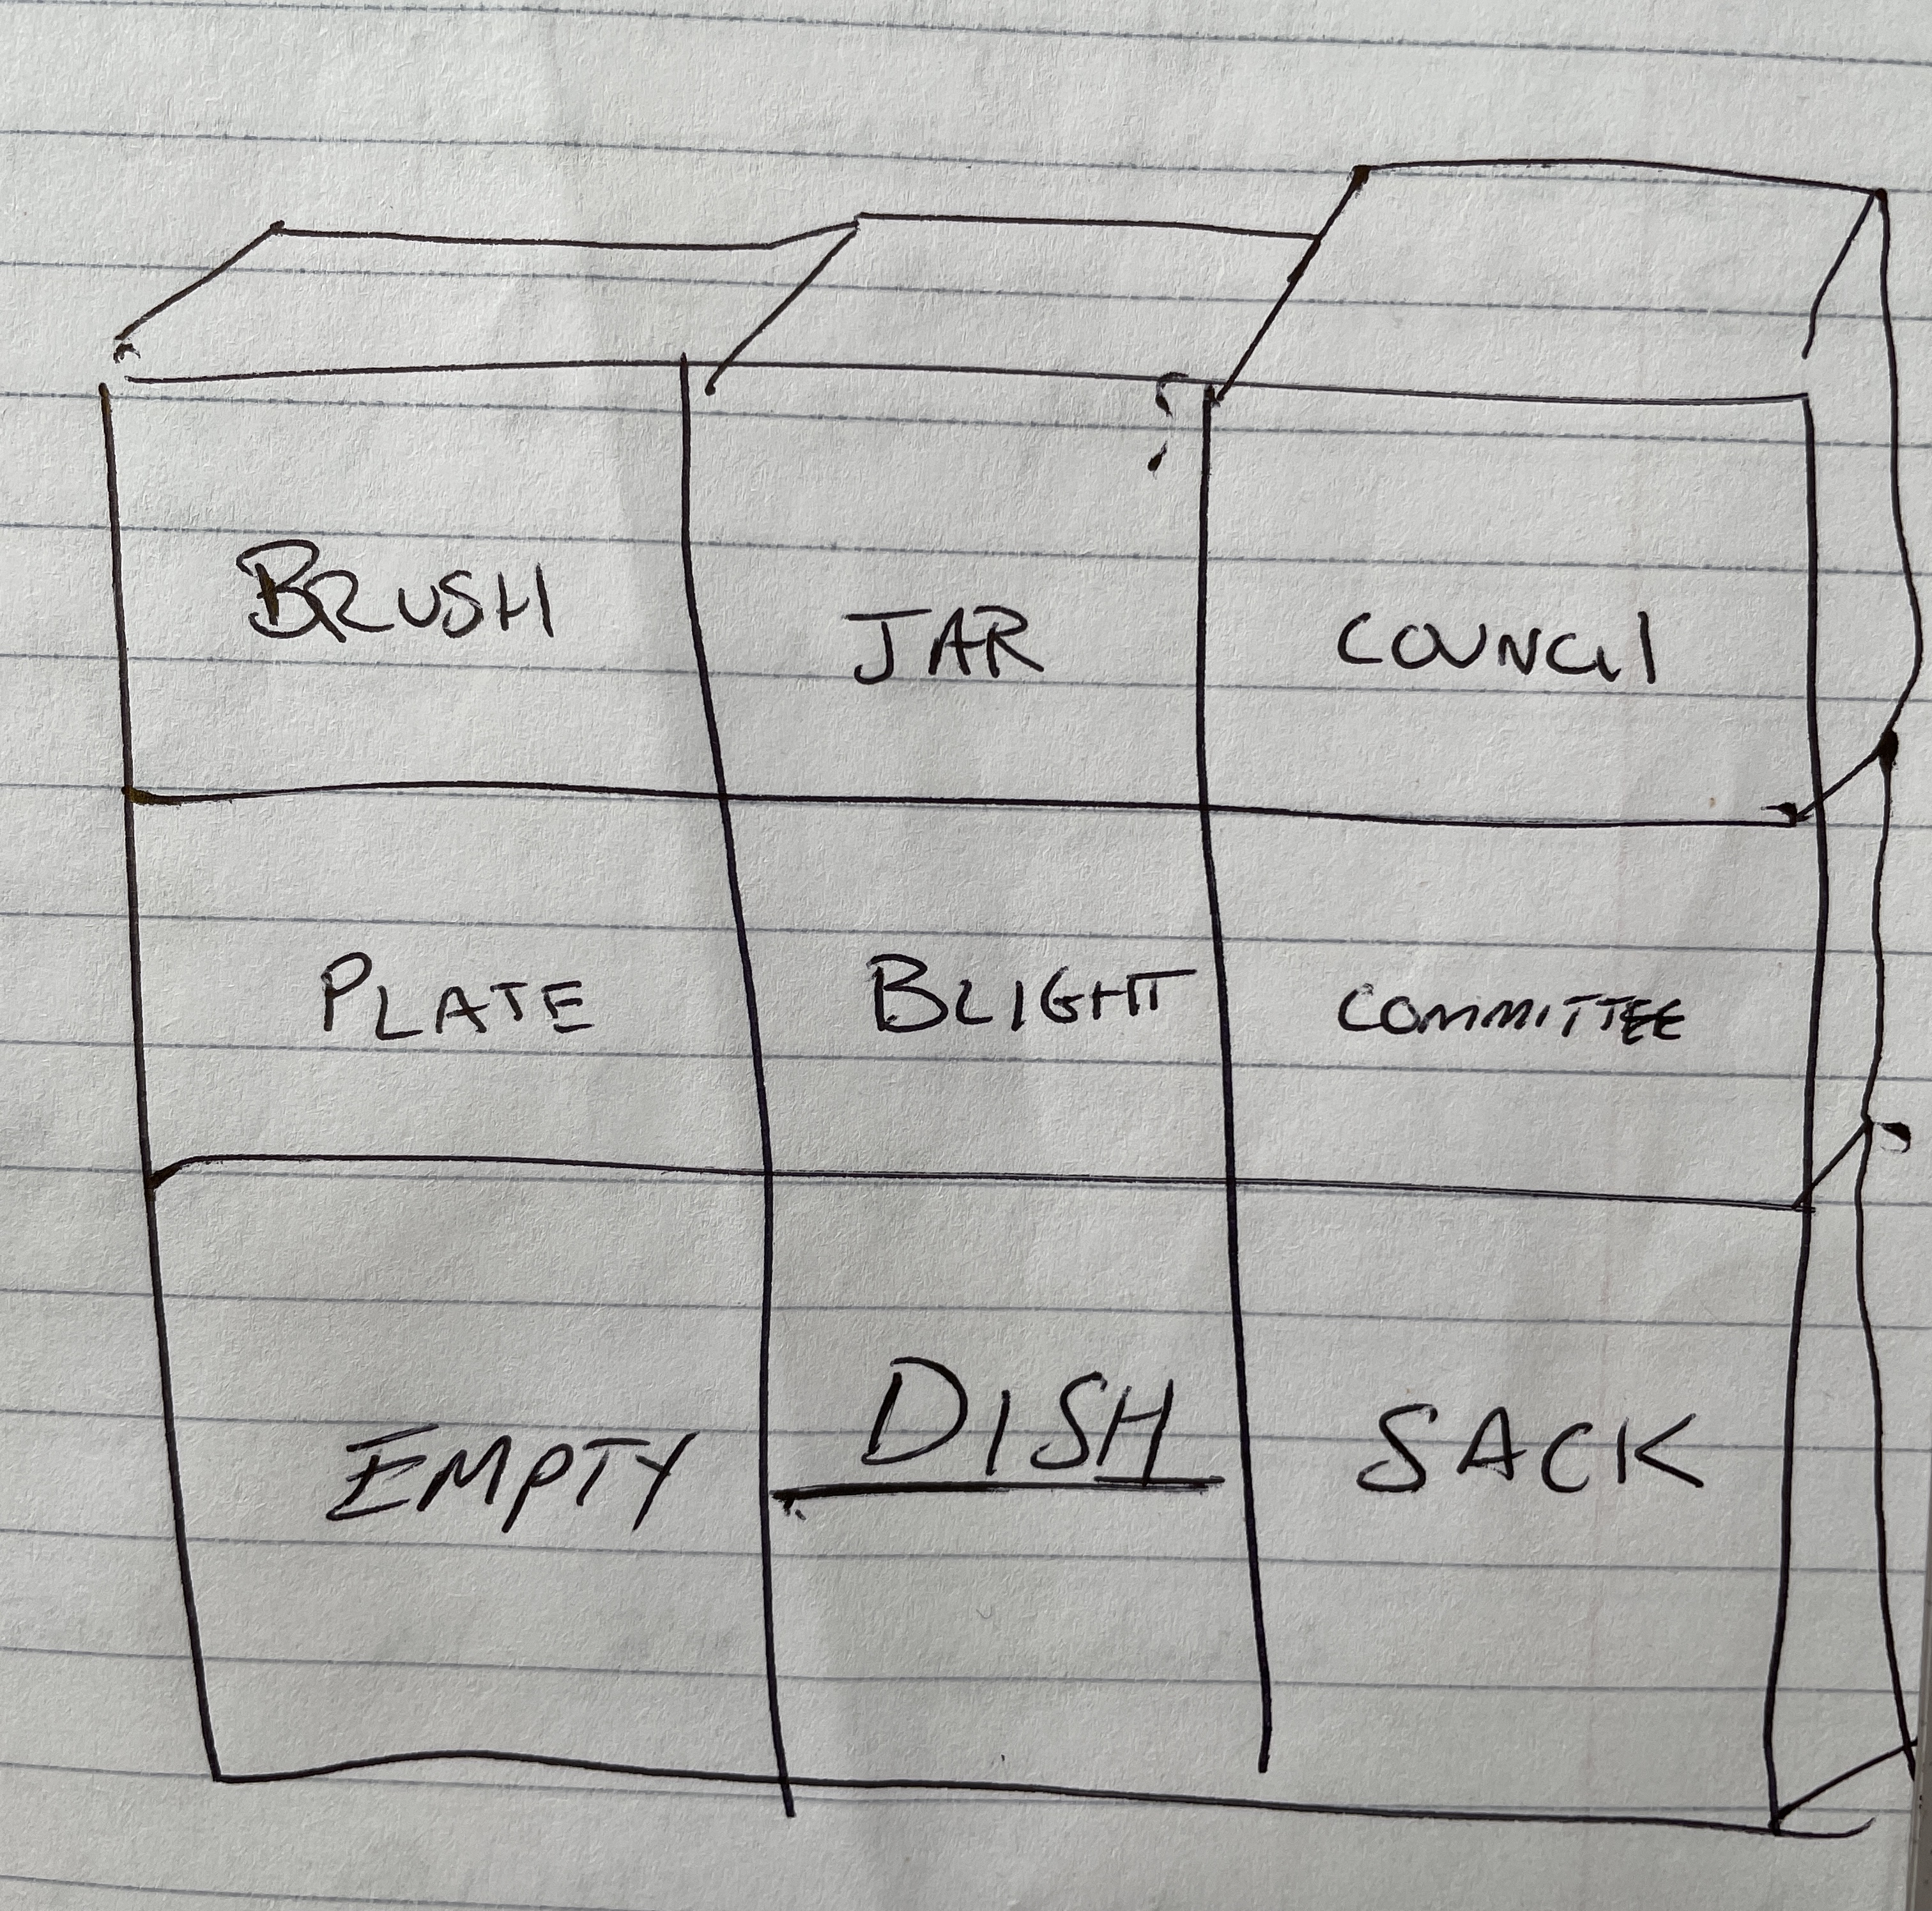 BRUSH JAR COUNCIL
PLATE BLIGHT COMMITTEE
EMPTY DISH SACK